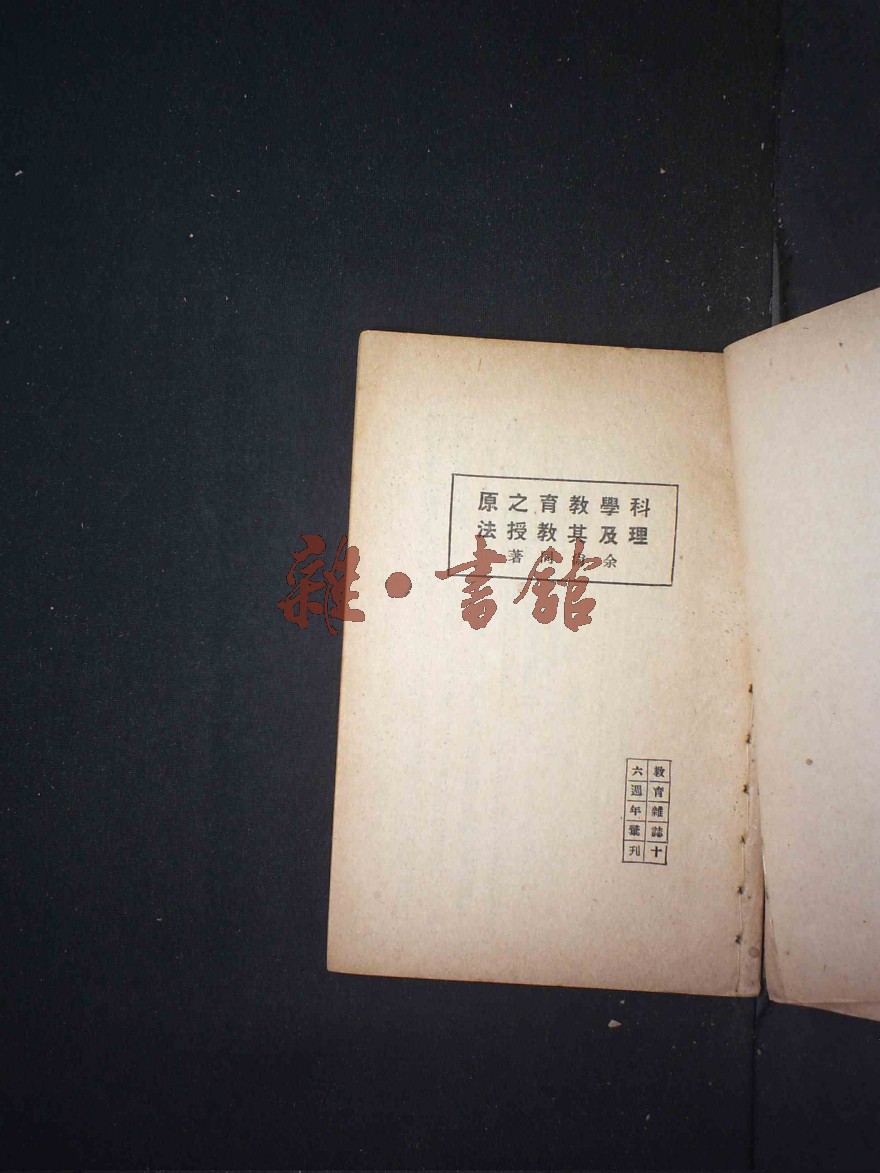 科學教育之原
理及其教授法
余 著
教育雜誌十
六週年彙刊
雜·書館